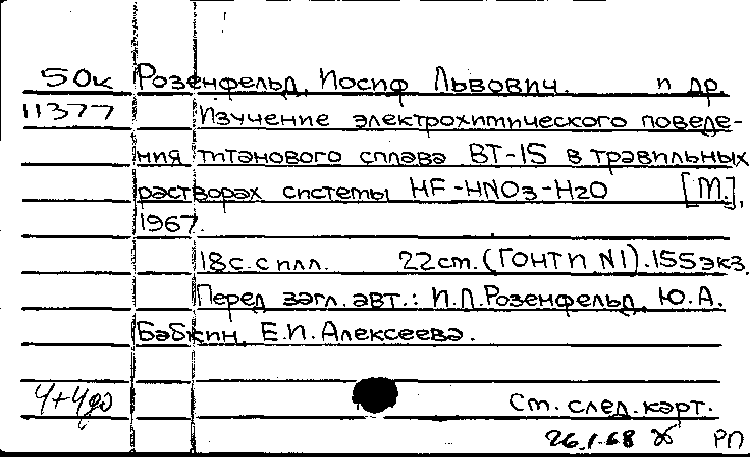 50к Розенфельд, Иосиф Львович. и др.
11377 Изучение электрохимического поведе-
ния титанового сплава ВТ-15 в травильных
растворах системы HF-HNO3-H2O [М.],
1967.
18с. с илл. 22см. (ГОНТИ N1). 155 экз.
Перед загл. авт.: И.Л. Розенфельд, Ю.А.
Бабкин, Е.И. Алексеева.
4+4до См. след. карт.
26.1.68 РП